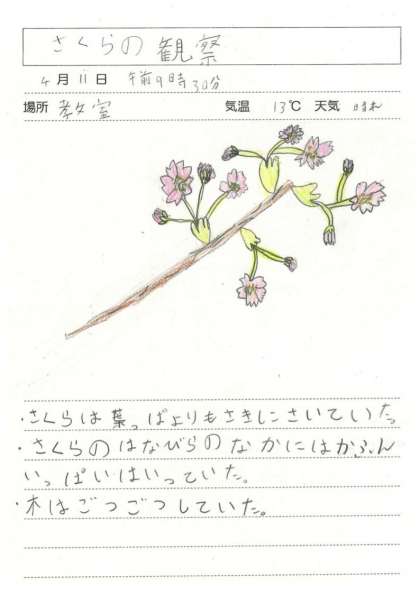 さくらの観察
4月11日 午前9時30分
場所 教室 気温 13℃ 天気 晴れ
・さくらは葉っぱよりもさきにさいていた
・さくらのはなびらのなかにはかふん
いっぱいはいっていた。
・木はごつごつしていた。